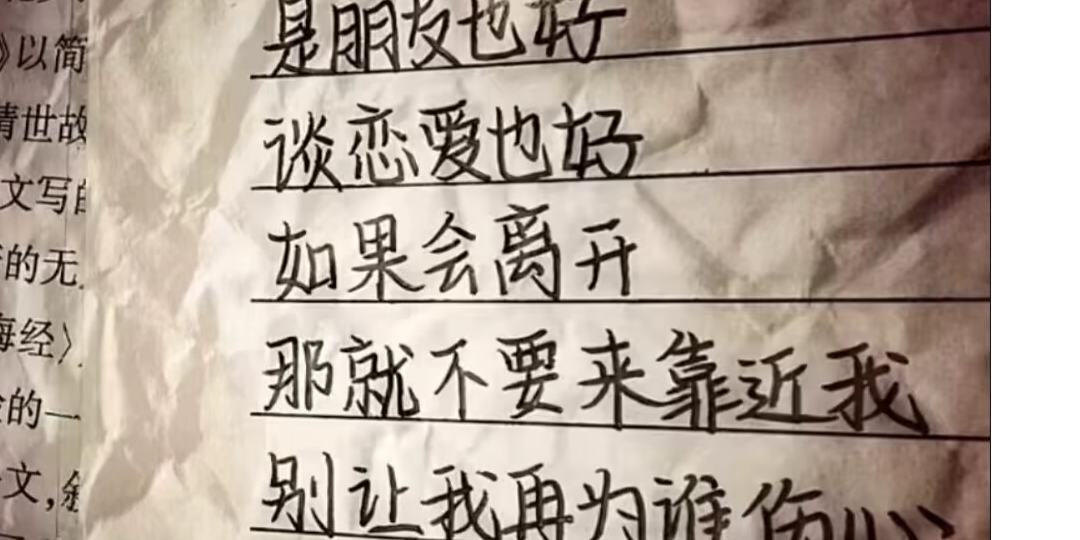 是朋友也好
谈恋爱也好
如果会离开
那就不要来靠近我
别让我再为谁伤心
》以简
情世故
文写
的无
海经〉
的一
文,